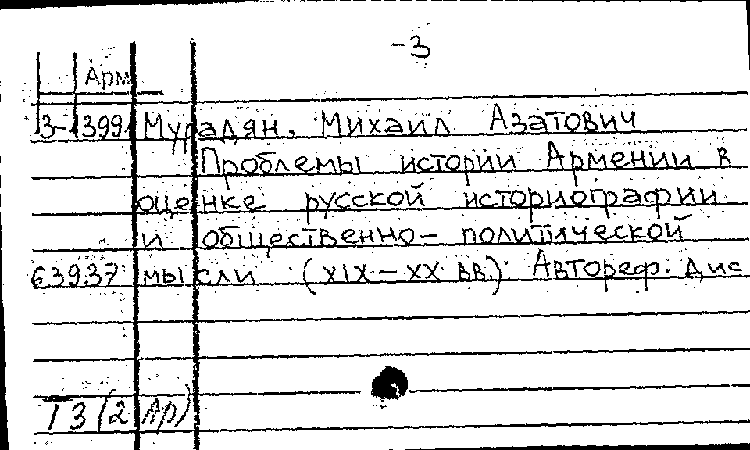 -3
Арм
3-1399 Мурадян, Михаил Азатович
Проблемы истории Армении в
оценке русской историографии
и общественно-политической
63937 мысли (XIX-XX вв). Автореф. дис
Т3(2Ар)